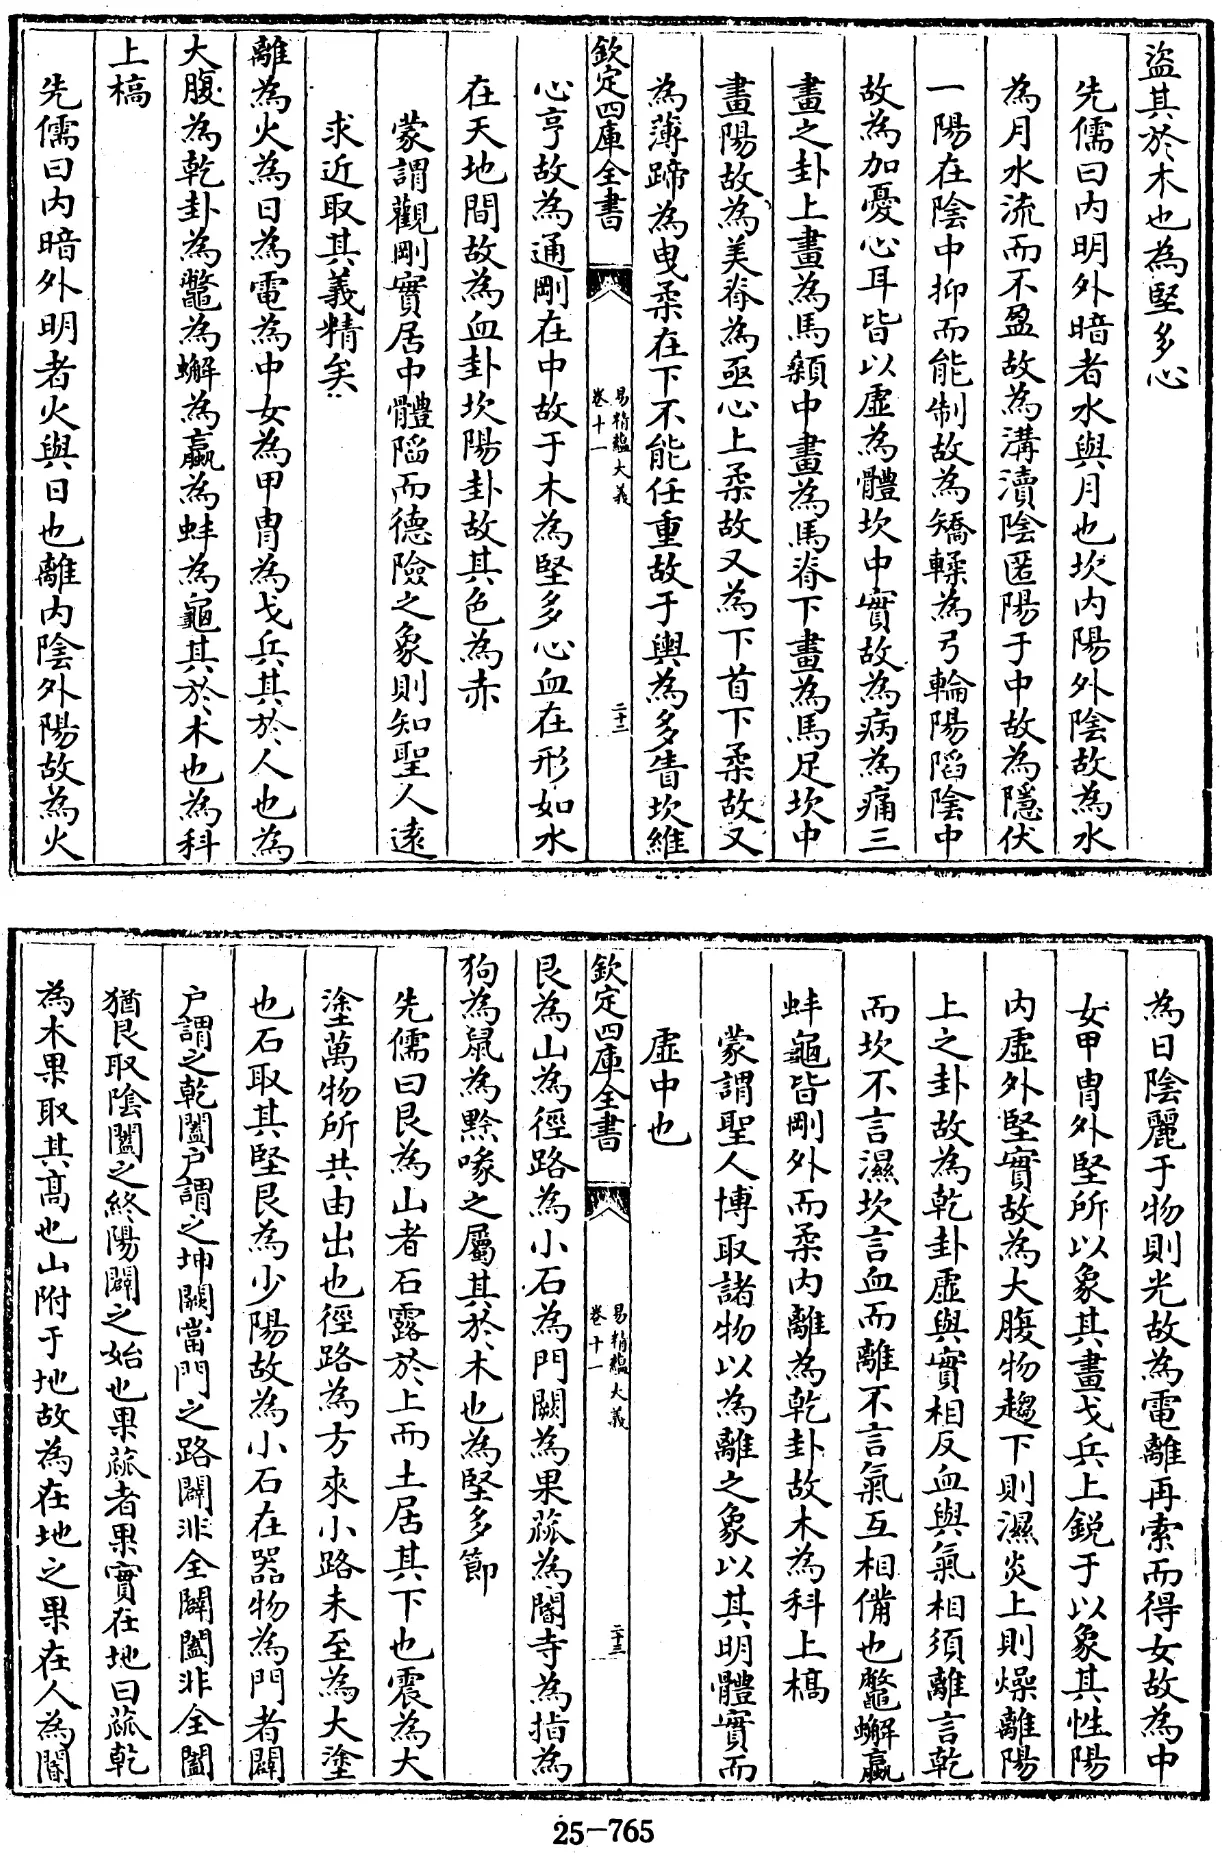 盜其於木也為堅多心
先儒曰内明外暗者水與月也坎内陽外陰故為水
為月水流而不盈故為溝瀆陰匿陽于中故為隱伏
一陽在陰中抑而能制故為矯輮為弓輪陽陷陰中
故為加憂心耳皆以虛為體坎中實故為病為痛三
畫之卦上畫為馬顙中畫為馬脊下畫為馬足坎中
畫陽故為美脊為亟心上柔故又為下首下柔故又
為薄蹄為曳柔在下不能任重故于輿為多眚坎維
欽定四庫全書
易精蘊大義
卷十一
二十二
心亨故為通剛在中故于木為堅多心血在形如水
在天地間故為血卦坎陽卦故其色為赤
蒙謂觀剛實居中體陷而德險之象則知聖人遠
求近取其義精矣
離為火為日為電為中女為甲胄為戈兵其於人也為
大腹為乾卦為鼈為蠏為蠃為蚌為龜其於木也為科
上槁
先儒曰内暗外明者火與日也離内陰外陽故為火
為日陰麗于物則光故為電離再索而得女故為中
女甲胄外堅所以象其畫戈兵上銳于以象其性陽
内虛外堅實故為大腹物趨下則濕炎上則燥離陽
上之卦故為乾卦虛與實相反血與氣相須離言乾
而坎不言濕坎言血而離不言氣互相備也鼈蠏蠃
蚌龜皆剛外而柔内離為乾卦故木為科上槁
蒙謂聖人博取諸物以為離之象以其明體實而
虛中也
欽定四庫全書
易精蘊大義
卷十一
二十三
艮為山為徑路為小石為門闕為果蓏為閽寺為指為
狗為鼠為黔喙之屬其於木也為堅多節
先儒曰艮為山者石露於上而土居其下也震為大
塗萬物所共由出也徑路為方來小路未至為大塗
也石取其堅艮為少陽故為小石在器物為門者闢
戶謂之乾闔戶謂之坤闕當門之路闢非全闢闔非全闔
猶艮取陰闔之終陽闢之始也果蓏者果實在地曰蓏乾
為木果取其高也山附于地故為在地之果在人為閽
25-765